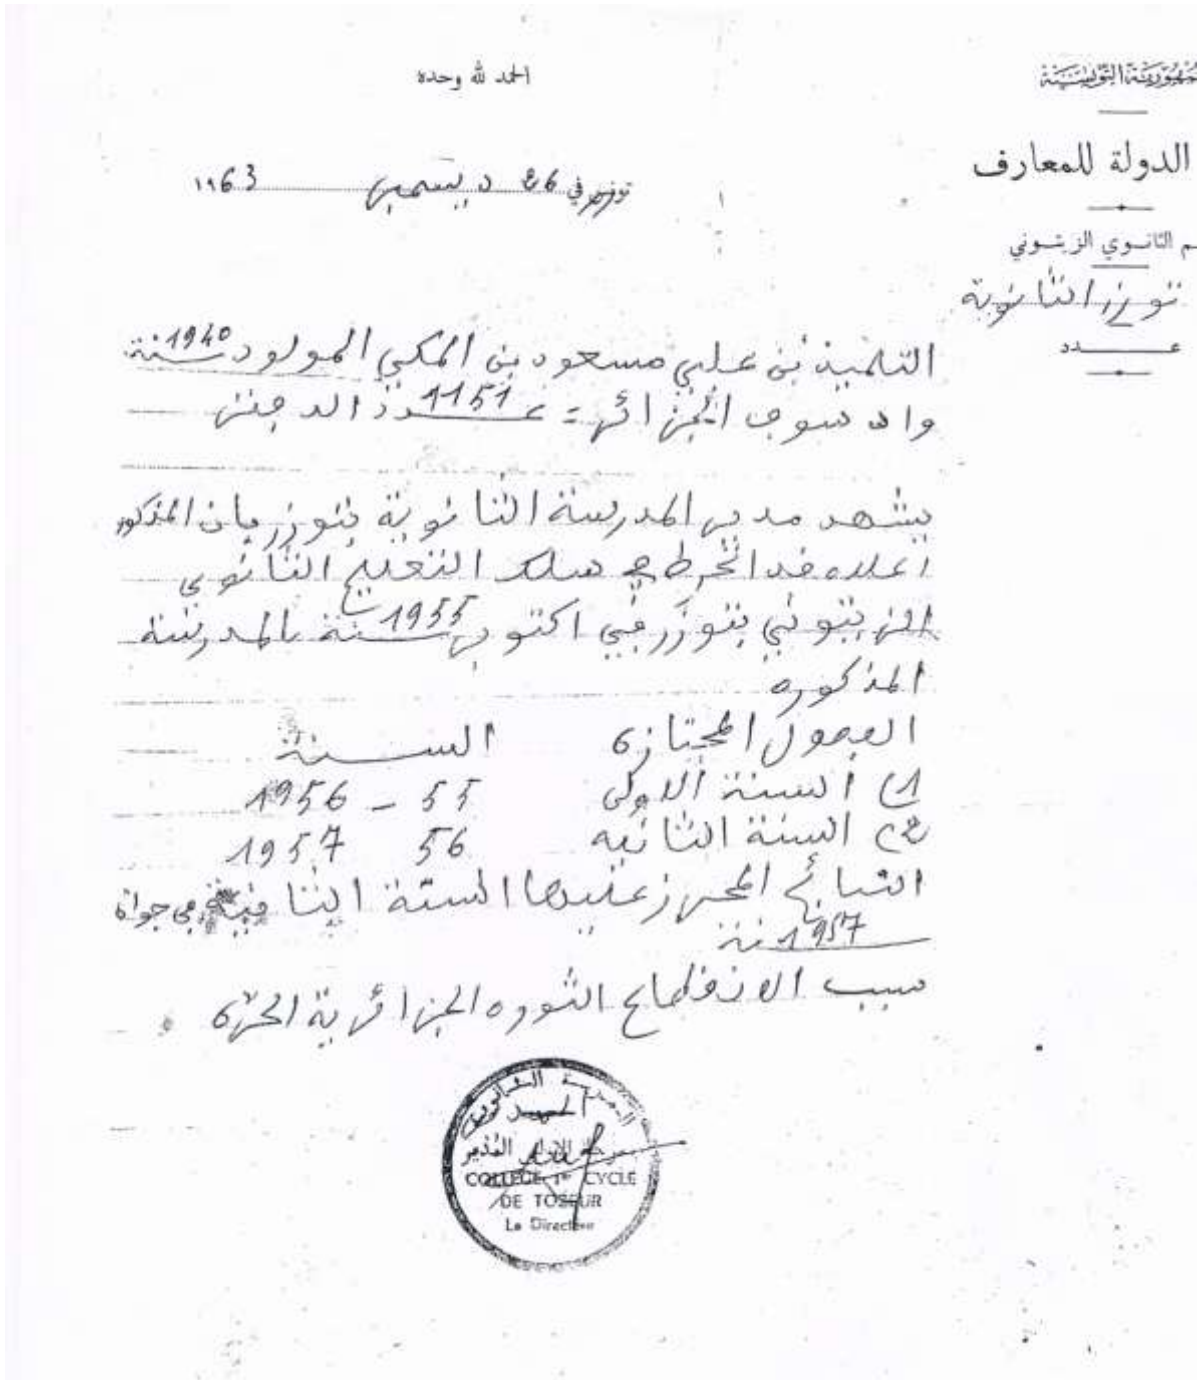 الحمد لله وحده
الجمهورية التونسية
الدولة للمعارف
م الثانوي الزيتوني
توزر الثانوية
عدد
توزر في 26 ديسمبر 1963
التلميذ بن علي مسعود بن المكي المولود سنة 1940
واد سوف الجزائر = عدد الدفتر 1151
يشهد مدير المدرسة الثانوية بتوزر بان المذكور
اعلاه قد انخرط في سلك التعليم الثانوي
الزيتوني بتوزر في اكتوبر سنة 1955 بالمدرسة
المذكوره
الفصول المجتازة السنة
1) السنة الاولى 55 - 1956
2) السنة الثانيه 56 1957
النتائج المحرز عليها السنة في جوان
سنة 1957
سبب الانقطاع الثوره الجزائرية الحرة .
المدرسة الثانوية
المدير
COLLEGE 1er CYCLE
DE TOZEUR
Le Directeur